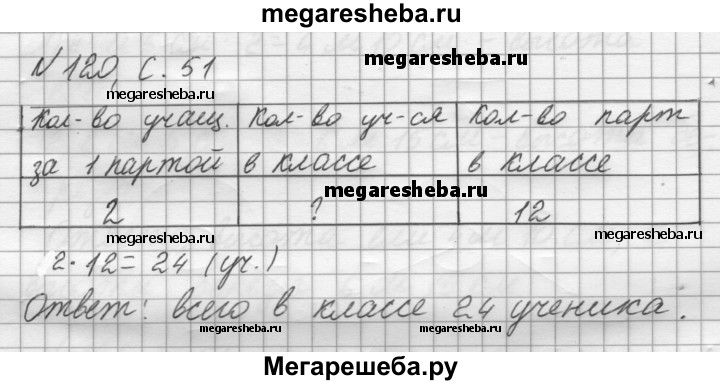 megaresheba.ru
N 120, С. 51
megaresheba.ru
Кол-во учащ. Кол-во уч-ся Кол-во парт
за 1 партой в классе в классе
megaresheba.ru
2 ? 12
megaresheba.ru megaresheba.ru
2·12=24 (уч.)
Ответ: всего в классе 24 ученика.
megaresheba.ru megaresheba.ru
Мегарешеба.ру